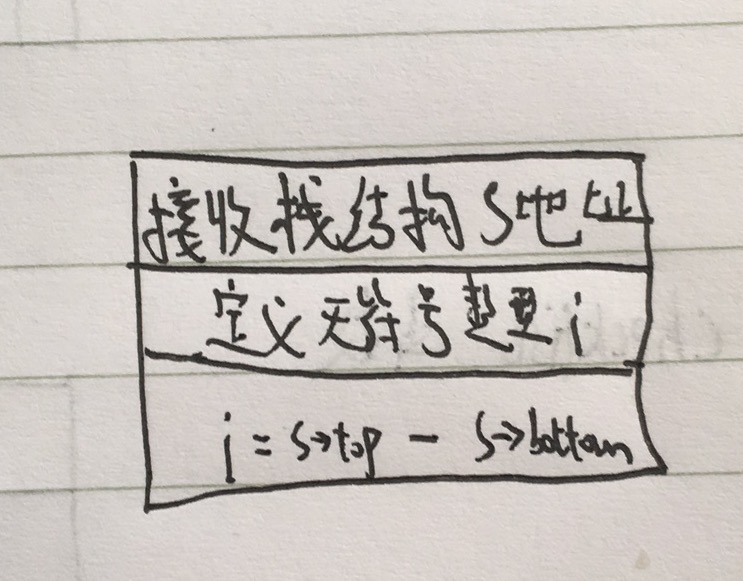 接收栈结构S地址
定义无符号整型i
i = S→top - S→bottom